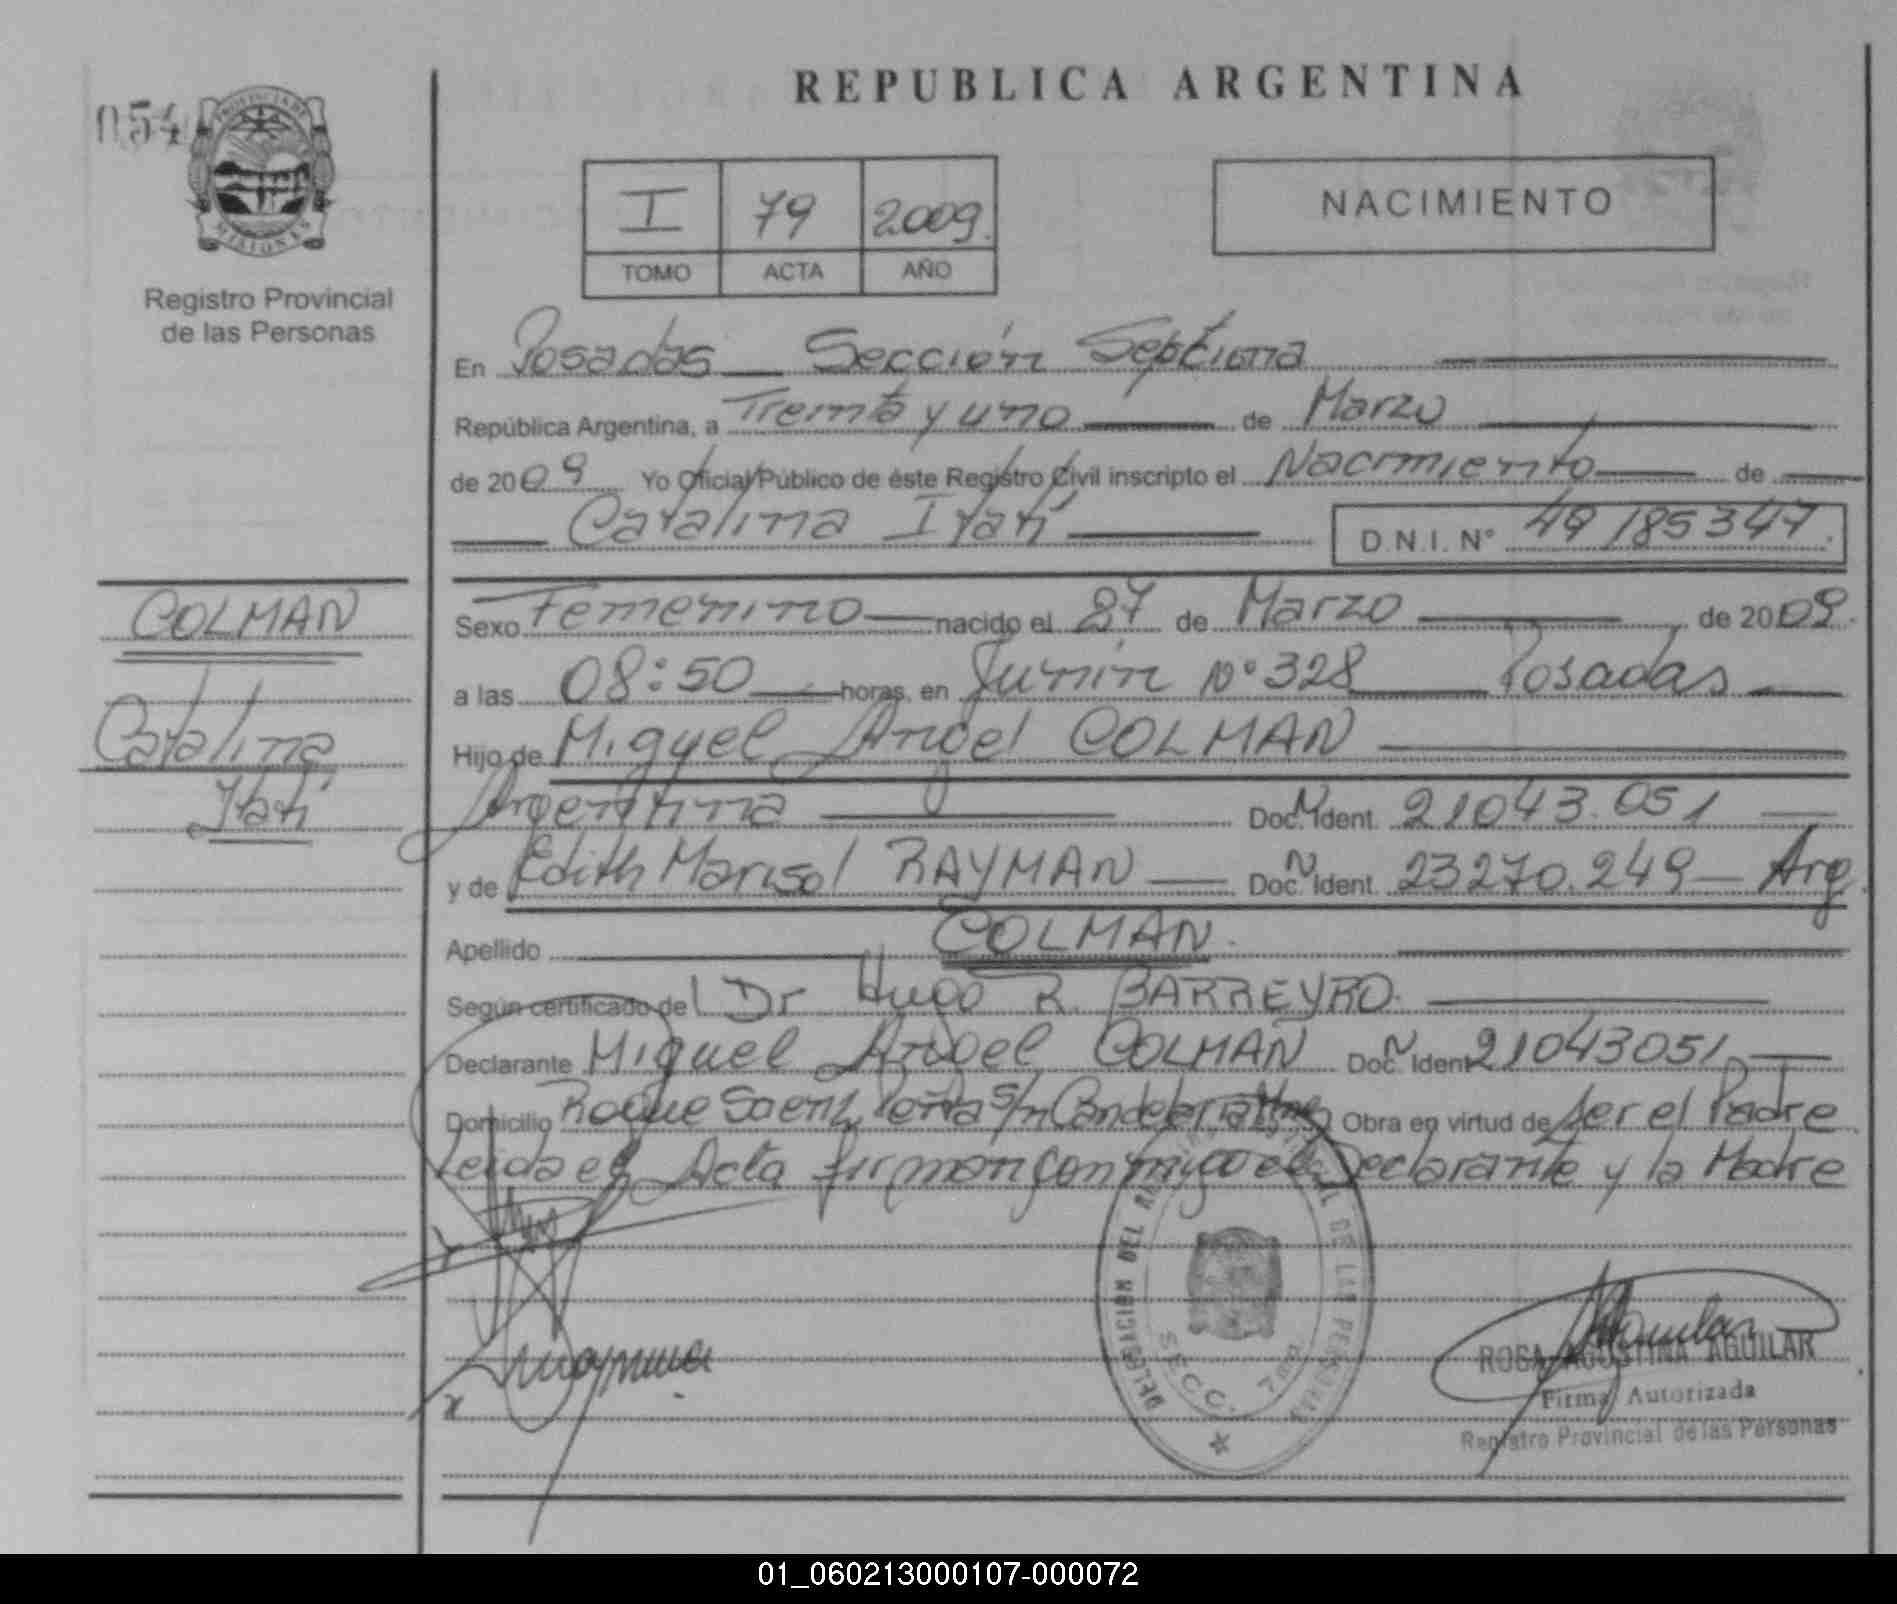 REPUBLICA ARGENTINA
054
PROVINCIA DE
MISIONES
Registro Provincial
de las Personas
I 79 2009.
TOMO ACTA AÑO
NACIMIENTO
En Posadas Sección Septima
República Argentina, a Treinta y uno de Marzo
de 2009 Yo Oficial Público de éste Registro Civil inscripto el Nacimiento de
Catalina Itatí D.N.I. Nº 49185347.
COLMAN
Catalina
Itatí
Sexo Femenino nacido el 27 de Marzo de 2009.
a las 08:50 horas, en Junín Nº 328 Posadas
Hijo de Miguel Angel COLMAN
Argentina Doc. N Ident. 21043.051
y de Edith Marisol RAYMAN Doc. N Ident. 23270.249 Arg.
Apellido COLMAN.
Según certificado del Dr Hugo R. BARREYRO.
Declarante Miguel Angel COLMAN Doc. N Ident 21043051
Domicilio Roque Saenz Peña S/n Candelaria Mnes Obra en virtud de ser el Padre
Leida el Acta firman conmigo el Declarante y la Madre
DELEGACION DEL DE LAS PERSONAS
SECC. 7ma
ROSA AGUSTINA AGUILAR
Firma Autorizada
Registro Provincial de las Personas
01_060213000107-000072